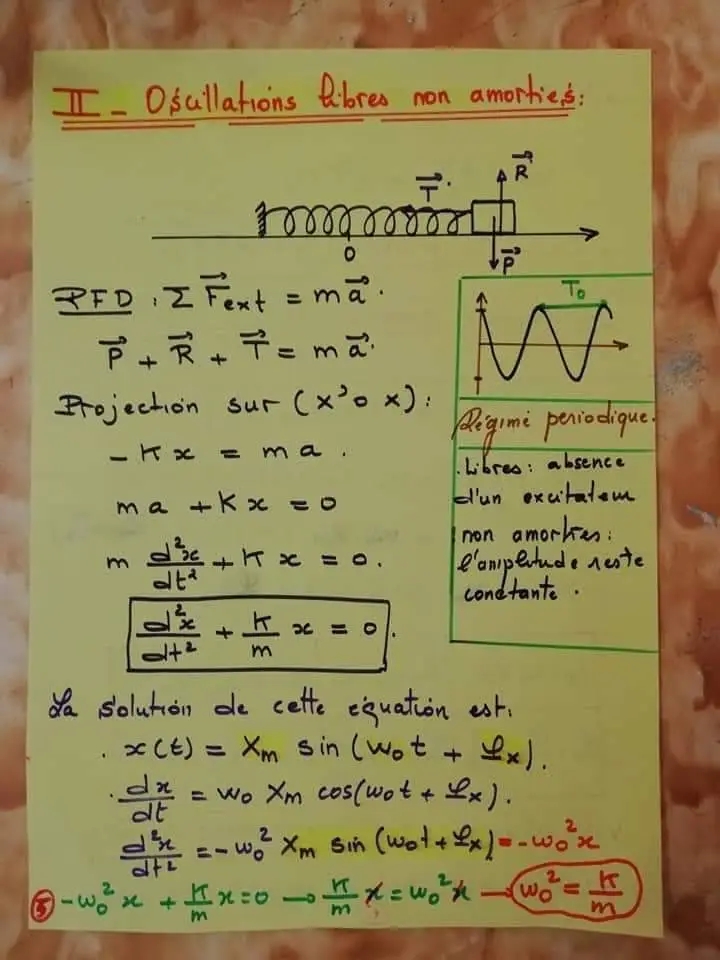 II - Oscillations libres non amorties:
T⃗
R⃗
O
P⃗
PFD : Σ F⃗ext = m a⃗.
P⃗ + R⃗ + T⃗ = m a⃗.
Projection sur (x'o x):
- K x = m a.
m a + K x = 0
m d²x/dt² + K x = 0.
d²x/dt² + K/m x = 0.
T₀
Régime periodique.
. Libres: absence
d'un excitateur
non amorties:
l'amplitude reste
constante.
La solution de cette équation est:
. x(t) = Xm sin (ω₀t + φx).
. dx/dt = ω₀ Xm cos(ω₀t + φx).
d²x/dt² = -ω₀² Xm sin (ω₀t + φx) = -ω₀²x
⑤ -ω₀² x + K/m x = 0 → K/m x = ω₀² x → ω₀² = K/m